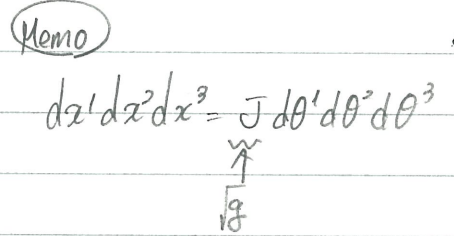 Memo
dx¹dx²dx³ = J dθ¹dθ²dθ³
↑
√g